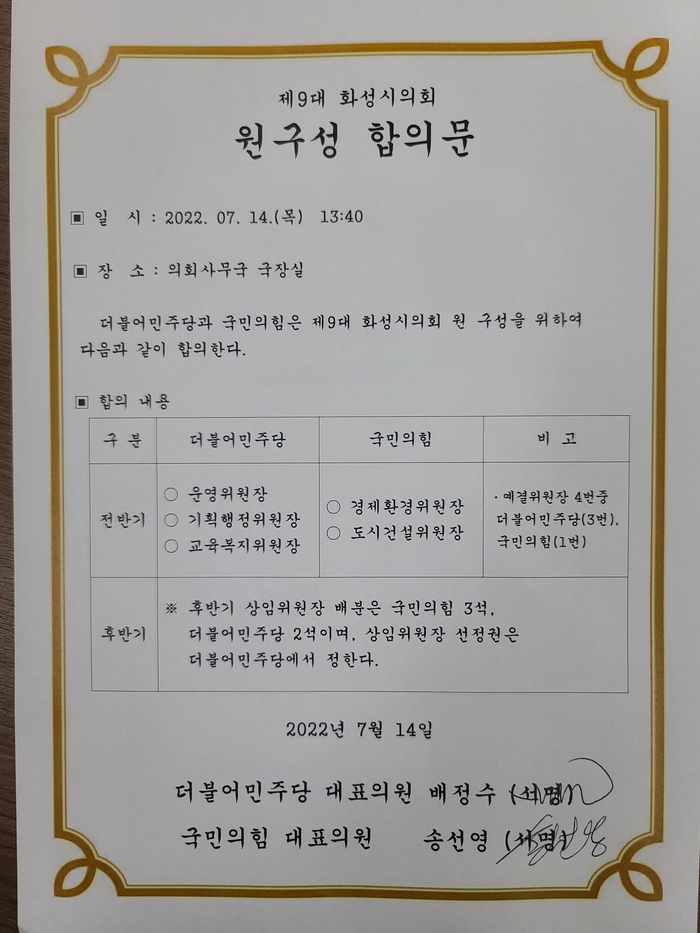 제9대 화성시의회
원구성 합의문
▣ 일 시 : 2022. 07. 14.(목) 13:40
▣ 장 소 : 의회사무국 국장실
더불어민주당과 국민의힘은 제9대 화성시의회 원 구성을 위하여
다음과 같이 합의한다.
▣ 합의 내용
구 분 더불어민주당 국민의힘 비 고
전반기
○ 운영위원장
○ 기획행정위원장
○ 교육복지위원장
○ 경제환경위원장
○ 도시건설위원장
· 예결위원장 4번중
더불어민주당(3번),
국민의힘(1번)
후반기
※ 후반기 상임위원장 배분은 국민의힘 3석,
더불어민주당 2석이며, 상임위원장 선정권은
더불어민주당에서 정한다.
2022년 7월 14일
더불어민주당 대표의원 배정수 (서명)
국민의힘 대표의원 송선영 (서명)